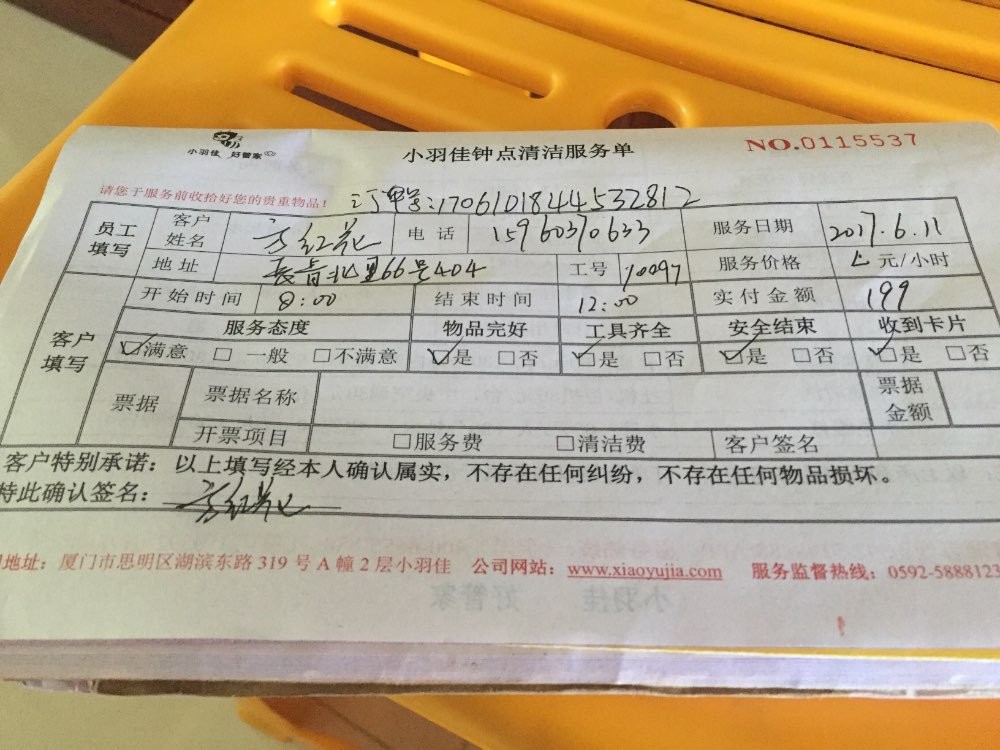 小羽佳 好管家
小羽佳钟点清洁服务单
NO.0115537
请您于服务前收拾好您的贵重物品！
订单号:1706101844532812
员工填写 客户姓名 方红花 电话 15960370633 服务日期 2017.6.11
地址 长青北里66号404 工号 10097 服务价格 元/小时
客户填写 开始时间 8:00 结束时间 12:00 实付金额 199
服务态度 物品完好 工具齐全 安全结束 收到卡片
☑满意 □一般 □不满意 ☑是 □否 ☑是 □否 ☑是 □否 ☑是 □否
票据 票据名称 票据金额
开票项目 □服务费 □清洁费 客户签名
客户特别承诺：以上填写经本人确认属实，不存在任何纠纷，不存在任何物品损坏。
特此确认签名：方红花
地址：厦门市思明区湖滨东路 319 号 A 幢 2 层小羽佳 公司网站：www.xiaoyujia.com 服务监督热线：0592-5888123
小羽佳 好管家